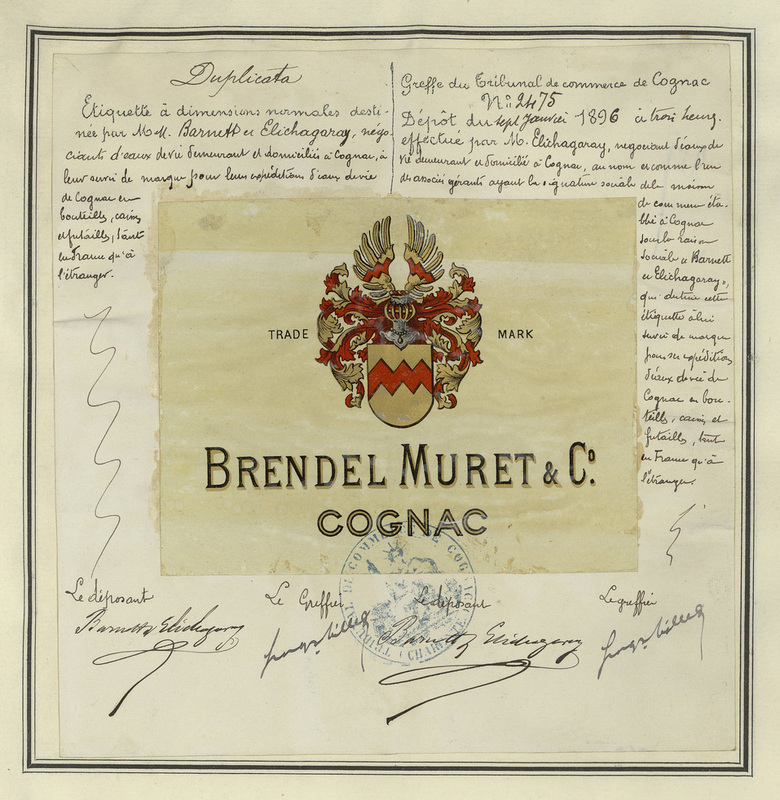 Duplicata
Etiquette à dimensions normales desti-
née par MM. Barnett et Elichagaray, négo-
ciants d'eaux de vie demeurant et domiciliés à Cognac, à
leur servir de marque pour leurs expéditions d'eaux de vie
de Cognac en
bouteilles, caisses
et futailles, tant
en France qu'à
l'étranger.
Greffe du Tribunal de commerce de Cognac
N° 2475
Dépôt du sept Janvier 1896 à trois heures.
effectué par M. Elichagaray, négociant d'eaux de
vie demeurant et domicilié à Cognac, au nom et comme l'un
des associés gérants ayant la signature sociale de la maison
de commerce éta-
blie à Cognac
sous la raison
sociale "Barnett
et Elichagaray",
qui destine cette
étiquette à lui
servir de marque
pour ses expéditions
d'eaux de vie de
Cognac en bou-
teilles, caisses et
futailles, tant
en France qu'à
l'étranger.
TRADE MARK
BRENDEL MURET & Cº.
COGNAC
TRIBUNAL DE COMMERCE DE COGNAC
(CHARENTE)
Le déposant Le Greffier Le déposant Le greffier
Barnett & Elichagaray
Barnett & Elichagaray